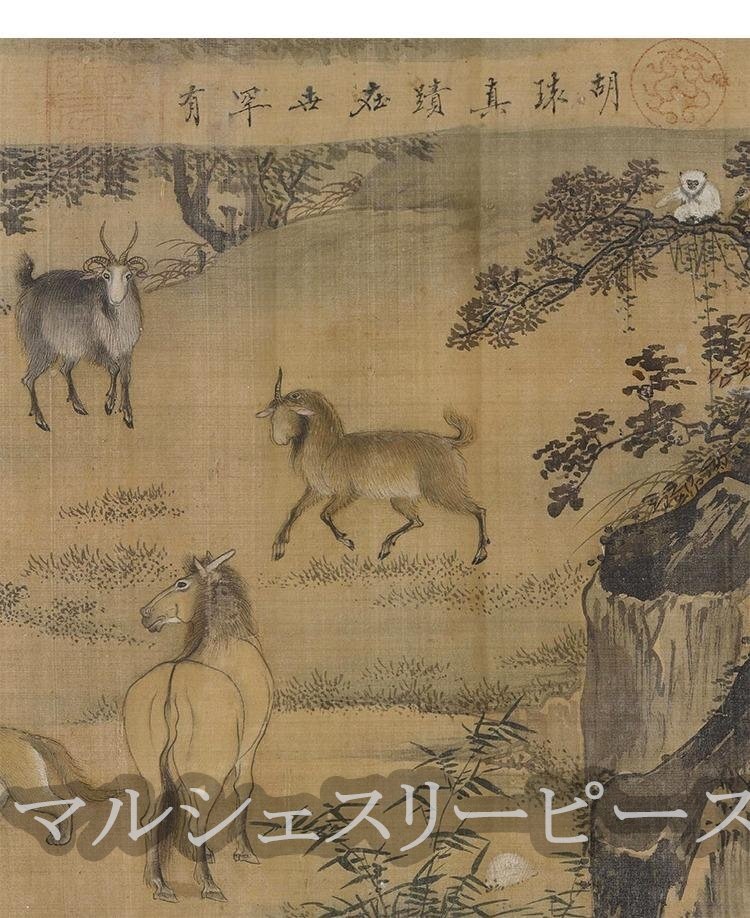 胡瓌真蹟在世罕有
マルシェスリーピース